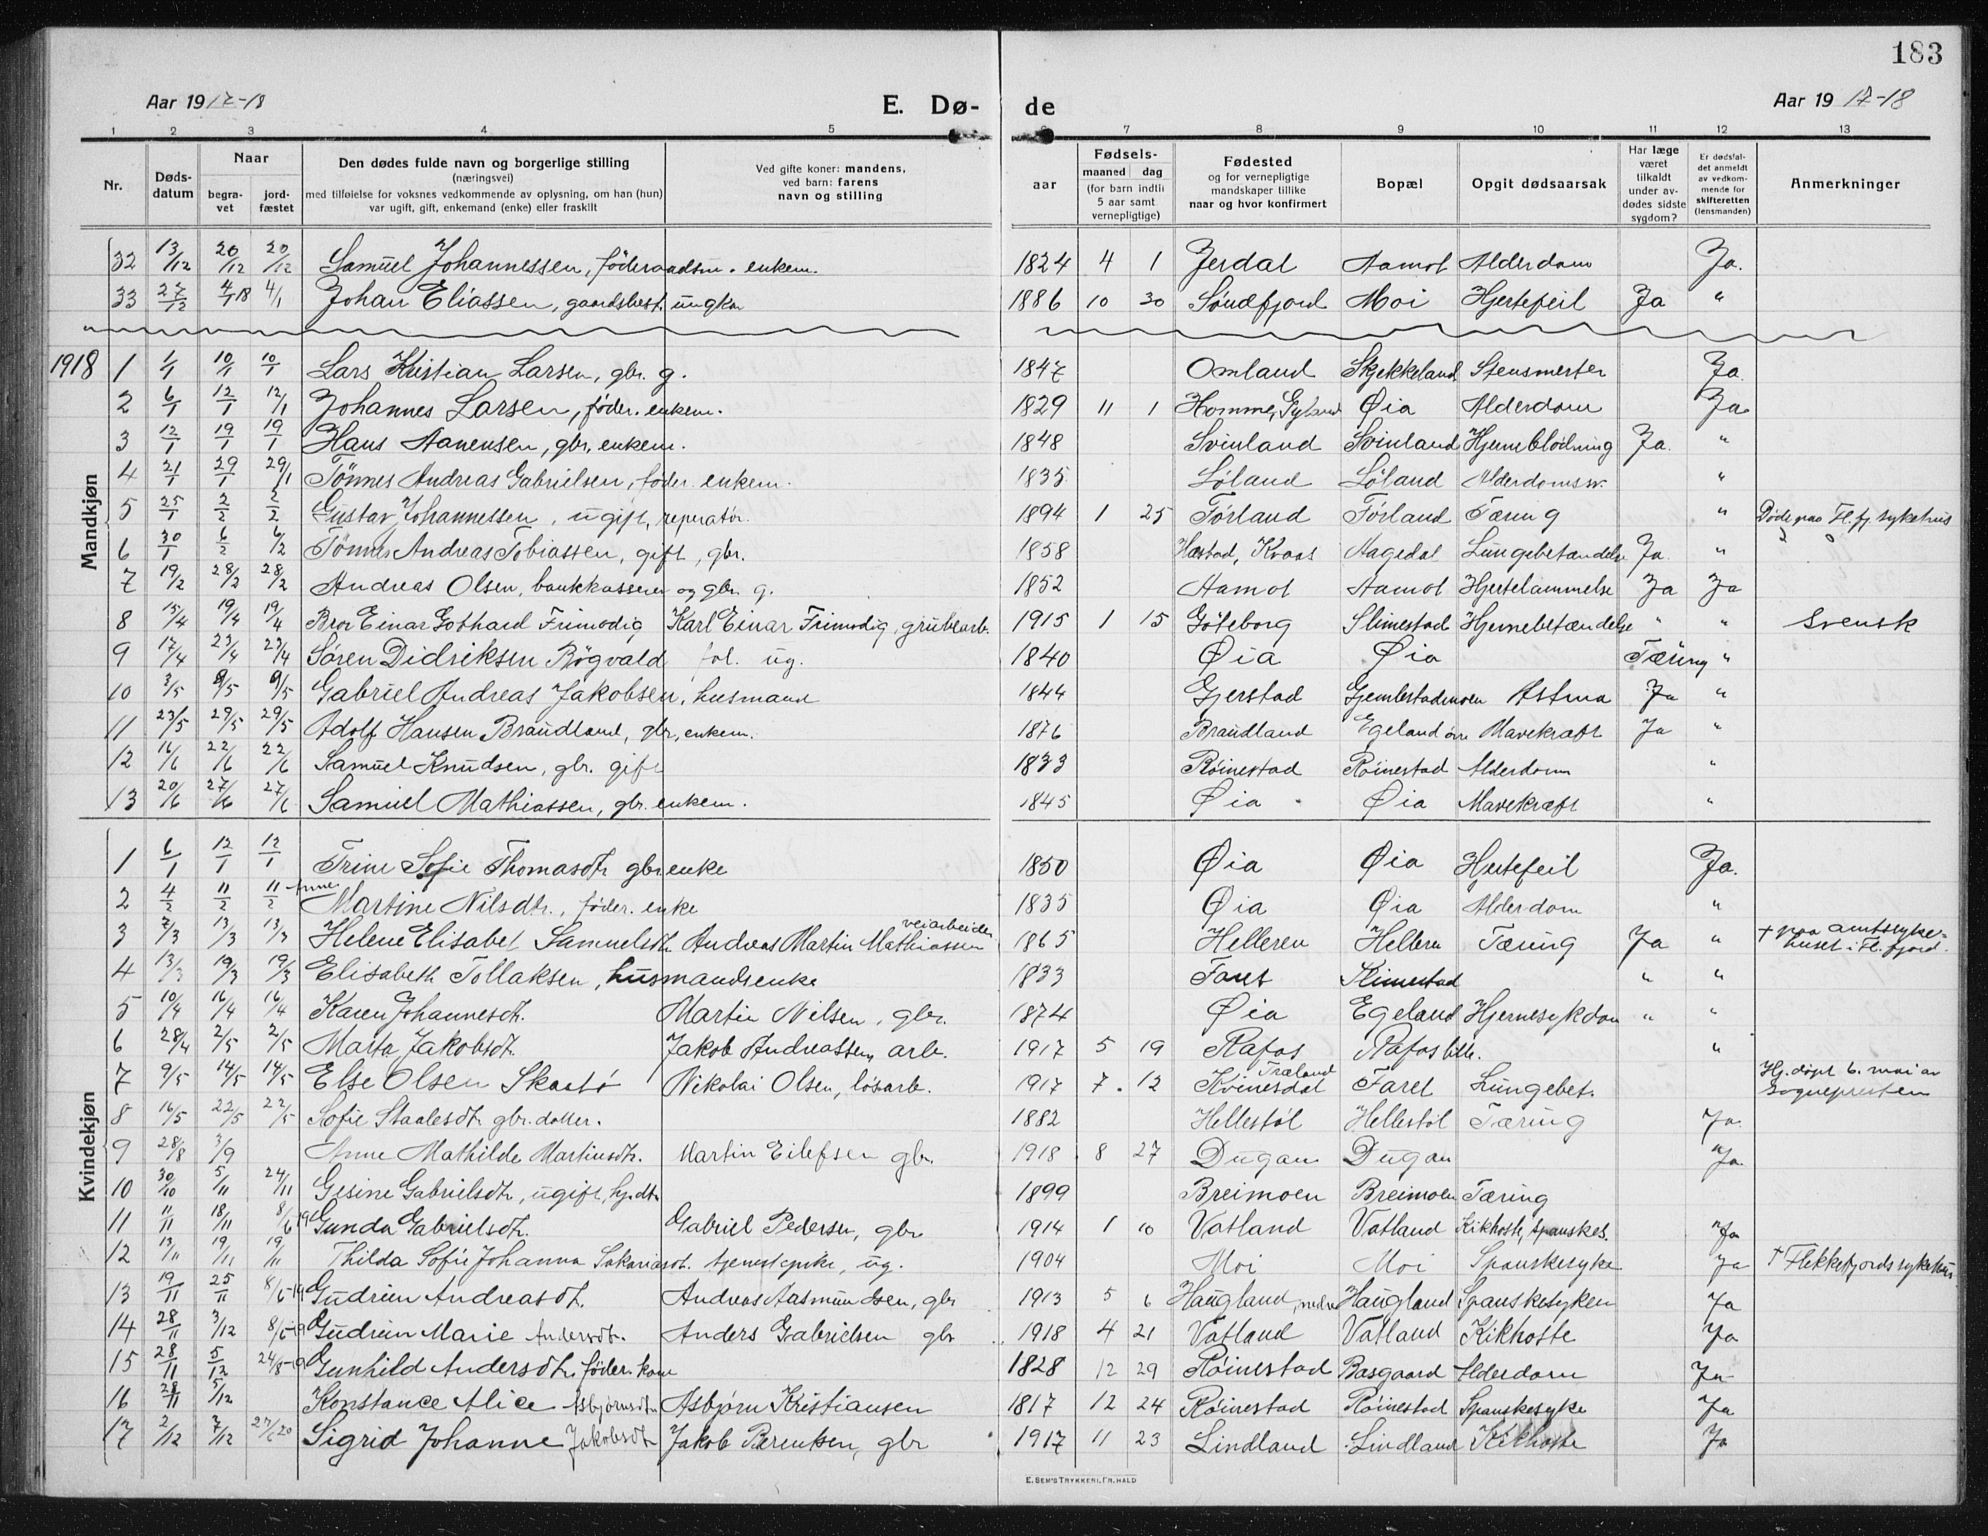 183
Aar 1917-18 E. Dø- de Aar 1917-18
1 2 3 4 5 6 7 8 9 10 11 12 13
Nr. Døds-datum Naar begra-vet jord-fæstet Den dødes fulde navn og borgerlige stilling (næringsvei) med tilføielse for voksnes vedkommende av oplysning, om han (hun) var ugift, gift, enkemand (enke) eller fraskilt Ved gifte koner: mandens, ved barn: farens navn og stilling aar Fødsels- maaned dag (for barn indtil 5 aar samt vernepligtige) Fødested og for vernepligtige mandskaper tillike naar og hvor konfirmert Bopæl Opgit dødsaarsak Har læge været tilkaldt under av-dødes sidste sygdom? Er dødsfal-det anmeldt av vedkom-mende for skifteretten (lensmanden) Anmerkninger
Mandkjøn
32 13/12 20/12 20/12 Samuel Johannessen, føderaadsm. enkem. 1824 4 1 Jerdal Aamot Alderdom Ja.
33 27/12 4/1 18 4/1 Johan Eliassen, gaardsbest. ungkar 1886 10 30 Søndfjord Moi Hjertefeil Ja "
1918 1 1/1 10/1 10/1 Lars Kristian Larsen, gbr. g. 1847 Omland Skjekkeland Stensmerter Ja.
2 6/1 12/1 12/1 Johannes Larsen, føder. enkem. 1829 11 1 Homme, Gyland Øia Alderdom Ja
3 12/1 19/1 19/1 Hans Aanensen, gbr, enkem. 1848 Svinland Svinland Hjerneblødning Ja. "
4 21/1 29/1 29/1 Tønnes Andreas Gabrielsen, føder. enkem. 1835 Løland Løland Alderdomssv. "
5 25/1 2/2 2/2 Gustav Johannessen, ugift, reperatør. 1894 1 25 Førland Førland Tæring " Døde paa Fl.fj. sykehus
6 30/1 6/2 6/2 Tønnes Andreas Tobiassen, gift, gbr. 1858 Hæstad, Kvaas Aagedal Lungebetændelse Ja. "
7 19/2 28/2 28/2 Andreas Olsen, bankkasserer og gbr. g. 1852 Aamot Aamot Hjertelammelse Ja Ja
8 15/4 19/4 19/4 Bror Einar Gothard Frimodig Karl Einar Frimodig, grubearb. 1915 1 15 Göteborg Slimestad Hjernebetændelse " " Svensk
9 17/4 23/4 23/4 Søren Didriksen Røgvald fol. ug. 1840 Øia Øia Tæring "
10 3/5 9/5 9/5 Gabriel Andreas Jakobsen, husmand 1844 Gjerstad Gjemlestadmoen Astma Ja "
11 23/5 29/5 29/5 Adolf Hansen Braudland, gbr, enkem. 1876 Braudland Egeland øvre Mavekræft Ja "
12 16/6 22/6 22/6 Samuel Knudsen, gbr. gift 1833 Røinestad Røinestad Alderdom "
13 20/6 27/6 27/6 Samuel Mathiassen, gbr. enkem. 1845 Øia Øia Mavekræft "
Kvindekjøn
1 6/1 12/1 12/1 Trine Sofie Thomasdt. gbrenke 1850 Øia Øia Hjertefeil Ja.
2 4/2 11/2 11/2 Anne Martine Nilsdtr., føder. enke 1835 Øia Øia Alderdom "
3 7/3 13/3 13/3 Helene Elisabet Samuelsdt. Andreas Martin Mathiassen veiarbeider 1865 Helleren Helleren Tæring Ja " + paa amtssyke=huset i Fl.fjord.
4 13/3 19/3 19/3 Elisabeth Tollaksen, husmandsenke 1833 Faret Slimestad " "
5 10/4 16/4 16/4 Karen Johannesdt. Martin Nilsen, gbr. 1874 Øia Egeland Hjernesykdom " "
6 28/4 2/5 2/5 Marta Jakobsdt. Jakob Andreassen, arb. 1917 5 19 Rafos Rafos lille. "
7 9/5 14/5 14/5 Else Olsen Skaatø Nikolai Olsen, løsarb. 1917 7 12 Træland Kvinesdal Faret Lungebet. Hj. døpt 6. mai av sognepresten
8 16/5 22/5 22/5 Sofie Staalesdt. gbr.datter. 1882 Hellestøl Hellestøl Tæring Ja.
9 28/8 3/9 Anne Mathilde Martinsdt. Martin Eilefsen gbr. 1918 8 27 Dugan Dugan "Ja.
10 30/10 5/11 24/11 Gesine Gabrielsdt, ugift, hj.dt. 1899 Breimoen Breimoen Tæring
11 11/11 18/11 8/6 19 Gunda Gabrielsdt. Gabriel Pedersen, gbr 1914 1 10 Vatland Vatland Kikhoste, spanskes. "Ja
12 13/11 19/11 19/11 Thilda Sofie Johanna Sakariasdt. tjenestepike, ug. 1904 Moi Moi Spanskesyke Ja + Flekkefjords sykehus
13 19/11 25/11 8/6-19 Gudrun Andreasdt. Andreas Aasmundsen, gbr 1913 5 6 Haugland, nedre Haugland Spanskesyken Ja
14 28/11 3/12 8/6-19 Gudrun Marie Andersdt. Anders Gabrielsen gbr 1918 4 21 Vatland Vatland Kikhoste Ja
15 28/11 5/12 24/8-19 Gunhild Andersdt. føder.kone 1828 12 29 Røinestad Basgaard Alderdom Ja
16 28/11 5/12 Konstance Alice Asbjørnsdt. Asbjørn Kristiansen 1817 12 24 Røinestad Røinestad Spanskesyke Ja
17 2/12 7/12 27/6 20 Sigrid Johanne Jakobsdt Jakob Berentsen, gbr 1917 11 23 Lindland Lindland Kikhoste Ja
E. SEM'S TRYKKERI, FR.HALD